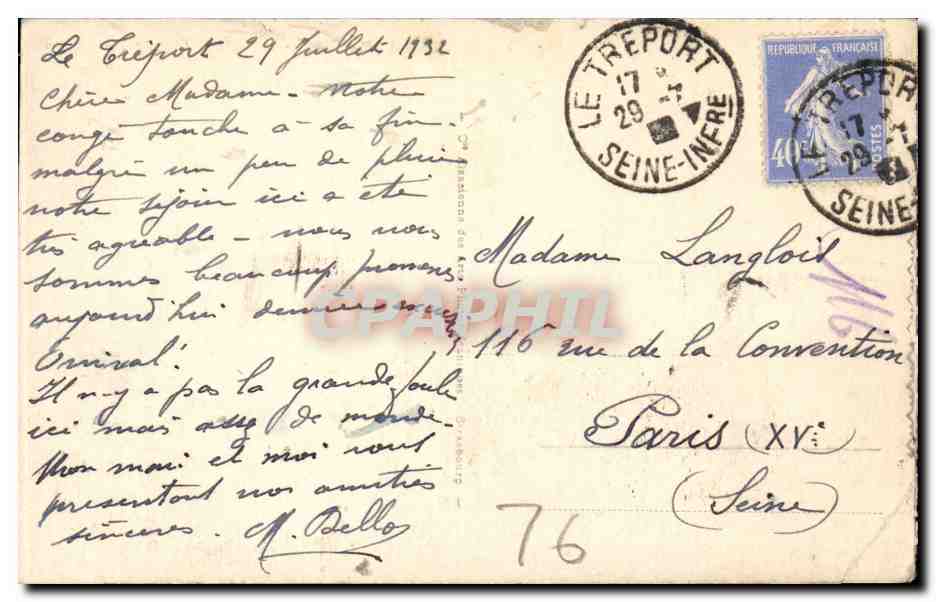 Le Tréport 29 Juillet 1932
Chère Madame - Notre
congé touche à sa fin -
malgré un peu de pluie
notre séjour ici a été
très agréable - nous nous
sommes beaucoup promenés
aujourd'hui dernière
Il n-y a pas la grande foule
ici mais assez de monde -
Mon mari et moi vous
présentons nos amitiés
sincères. M. Bellos
LE TREPORT
17
29
SEINE-INFRE
REPUBLIQUE FRANÇAISE
40c
POSTES
LE TREPORT
17
29
SEINE-
Madame Langlois
116 rue de la Convention
Paris (XVe)
(Seine)
116
76
CPAPHIL